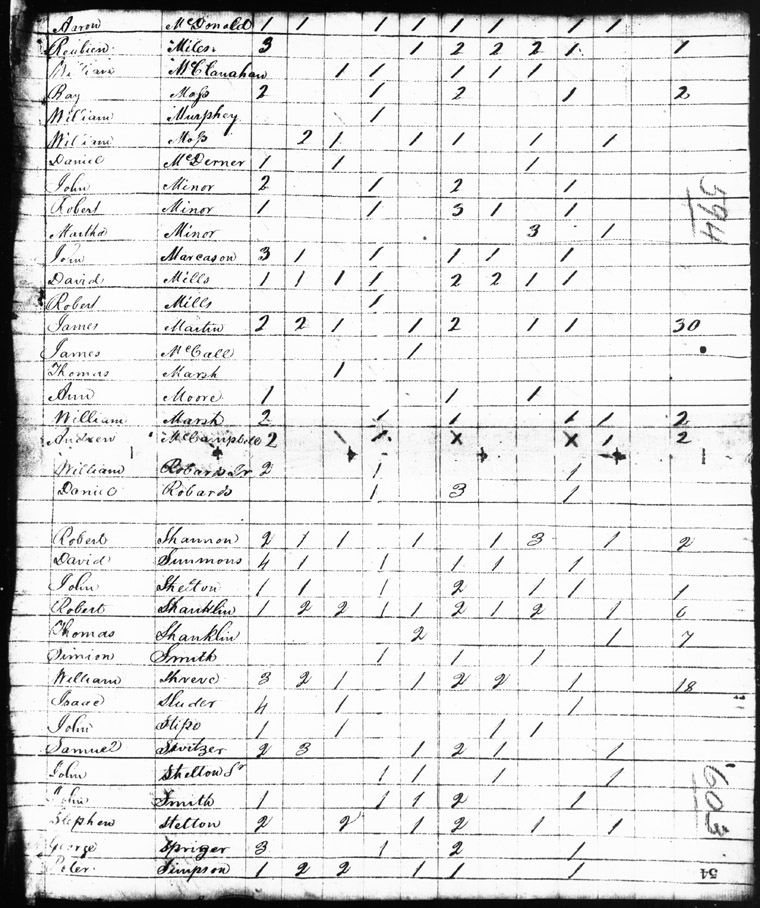 Aaron McDonald 1 1 1 1 1 1 1 1 1
Reubien Miles 3 1 2 2 2 1 1
William McClanahan 1 1 1 1 1
Ray Moss 2 1 2 1 2
William Murphey 1
William Moss 2 1 1 1 1 1
Daniel McDerner 1 1 1
John Minor 2 1 2 1
Robert Minor 1 1 3 1 1
Martha Minor 3 1
John Marcason 3 1 1 1 1 1
David Mills 1 1 1 1 2 2 1 1
Robert Mills 1
James Martin 2 2 1 1 2 1 1 30
James McCall 1
Thomas Marsh 1
Ann Moore 1 1 1
William Marsh 2 1 1 1 1 2
Andrew McCampbell 2 1 1 X X 1 2
William Robards Jr 2 1 1
Daniel Robards 1 3 1
Robert Shannon 2 1 1 1 1 3 1 2
David Simmons 4 1 1 1 1 1
John Shelton 1 1 1 2 1 1 1
Robert Shanklin 1 2 2 1 1 2 1 2 1 6
Thomas Shanklin 2 1 7
Simion Smith 1 1 1
William Shreve 3 2 1 1 2 2 1 18
Isaac Sluder 4 1 1
John 1 1 1 1
Samuel Switzer 2 3 1 2 1 1
John Shelton Sr 1 1 1 1
John Smith 1 1 1 2 1
Stephen Stelton 2 2 1 2 1 1
George Spriger 3 1 2 1
Peter Simpson 1 2 2 1 1 1
594
603
54